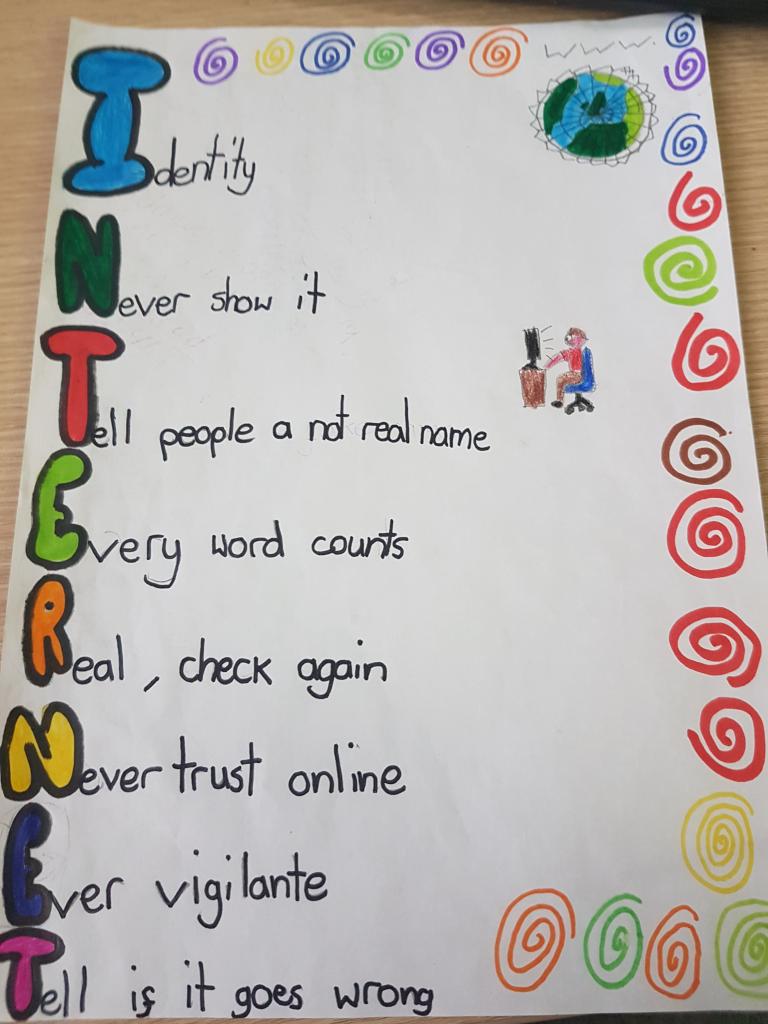 www.
Identity
Never show it
Tell people a not real name
Every word counts
Real, check again
Never trust online
Ever vigilante
Tell is it goes wrong